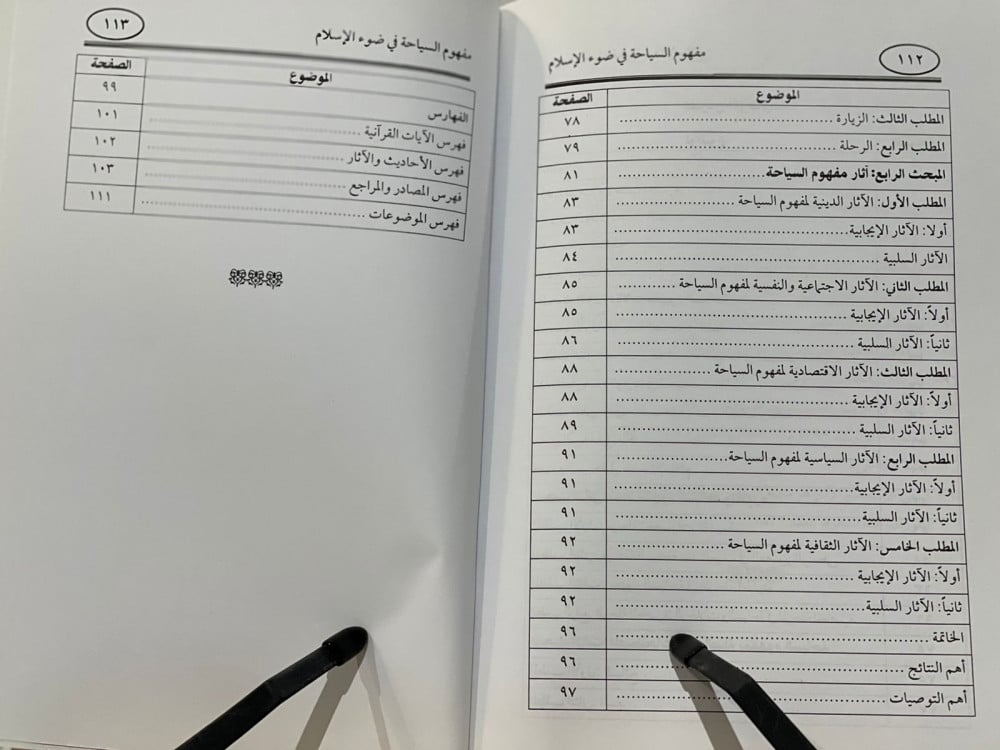 ١١٢
مفهوم السياحة في ضوء الإسلام
الموضوع الصفحة
المطلب الثالث: الزيارة ........ ٧٨
المطلب الرابع: الرحلة ........ ٧٩
المبحث الرابع: آثار مفهوم السياحة ........ ٨١
المطلب الأول: الآثار الدينية لمفهوم السياحة ........ ٨٣
أولا: الآثار الإيجابية ........ ٨٣
الآثار السلبية ........ ٨٤
المطلب الثاني: الآثار الاجتماعية والنفسية لمفهوم السياحة ........ ٨٥
أولاً: الآثار الإيجابية ........ ٨٥
ثانياً: الآثار السلبية ........ ٨٦
المطلب الثالث: الآثار الاقتصادية لمفهوم السياحة ........ ٨٨
أولاً: الآثار الإيجابية ........ ٨٨
ثانياً: الآثار السلبية ........ ٨٩
المطلب الرابع: الآثار السياسية لمفهوم السياحة ........ ٩١
أولاً: الآثار الإيجابية ........ ٩١
ثانياً: الآثار السلبية ........ ٩١
المطلب الخامس: الآثار الثقافية لمفهوم السياحة ........ ٩٢
أولاً: الآثار الإيجابية ........ ٩٢
ثانياً: الآثار السلبية ........ ٩٢
الخاتمة ........ ٩٦
أهم النتائج ........ ٩٦
أهم التوصيات ........ ٩٧
مفهوم السياحة في ضوء الإسلام
١١٣
الموضوع الصفحة
الفهارس ٩٩
فهرس الآيات القرآنية ........ ١٠١
فهرس الأحاديث والآثار ........ ١٠٢
فهرس المصادر والمراجع ........ ١٠٣
فهرس الموضوعات ........ ١١١